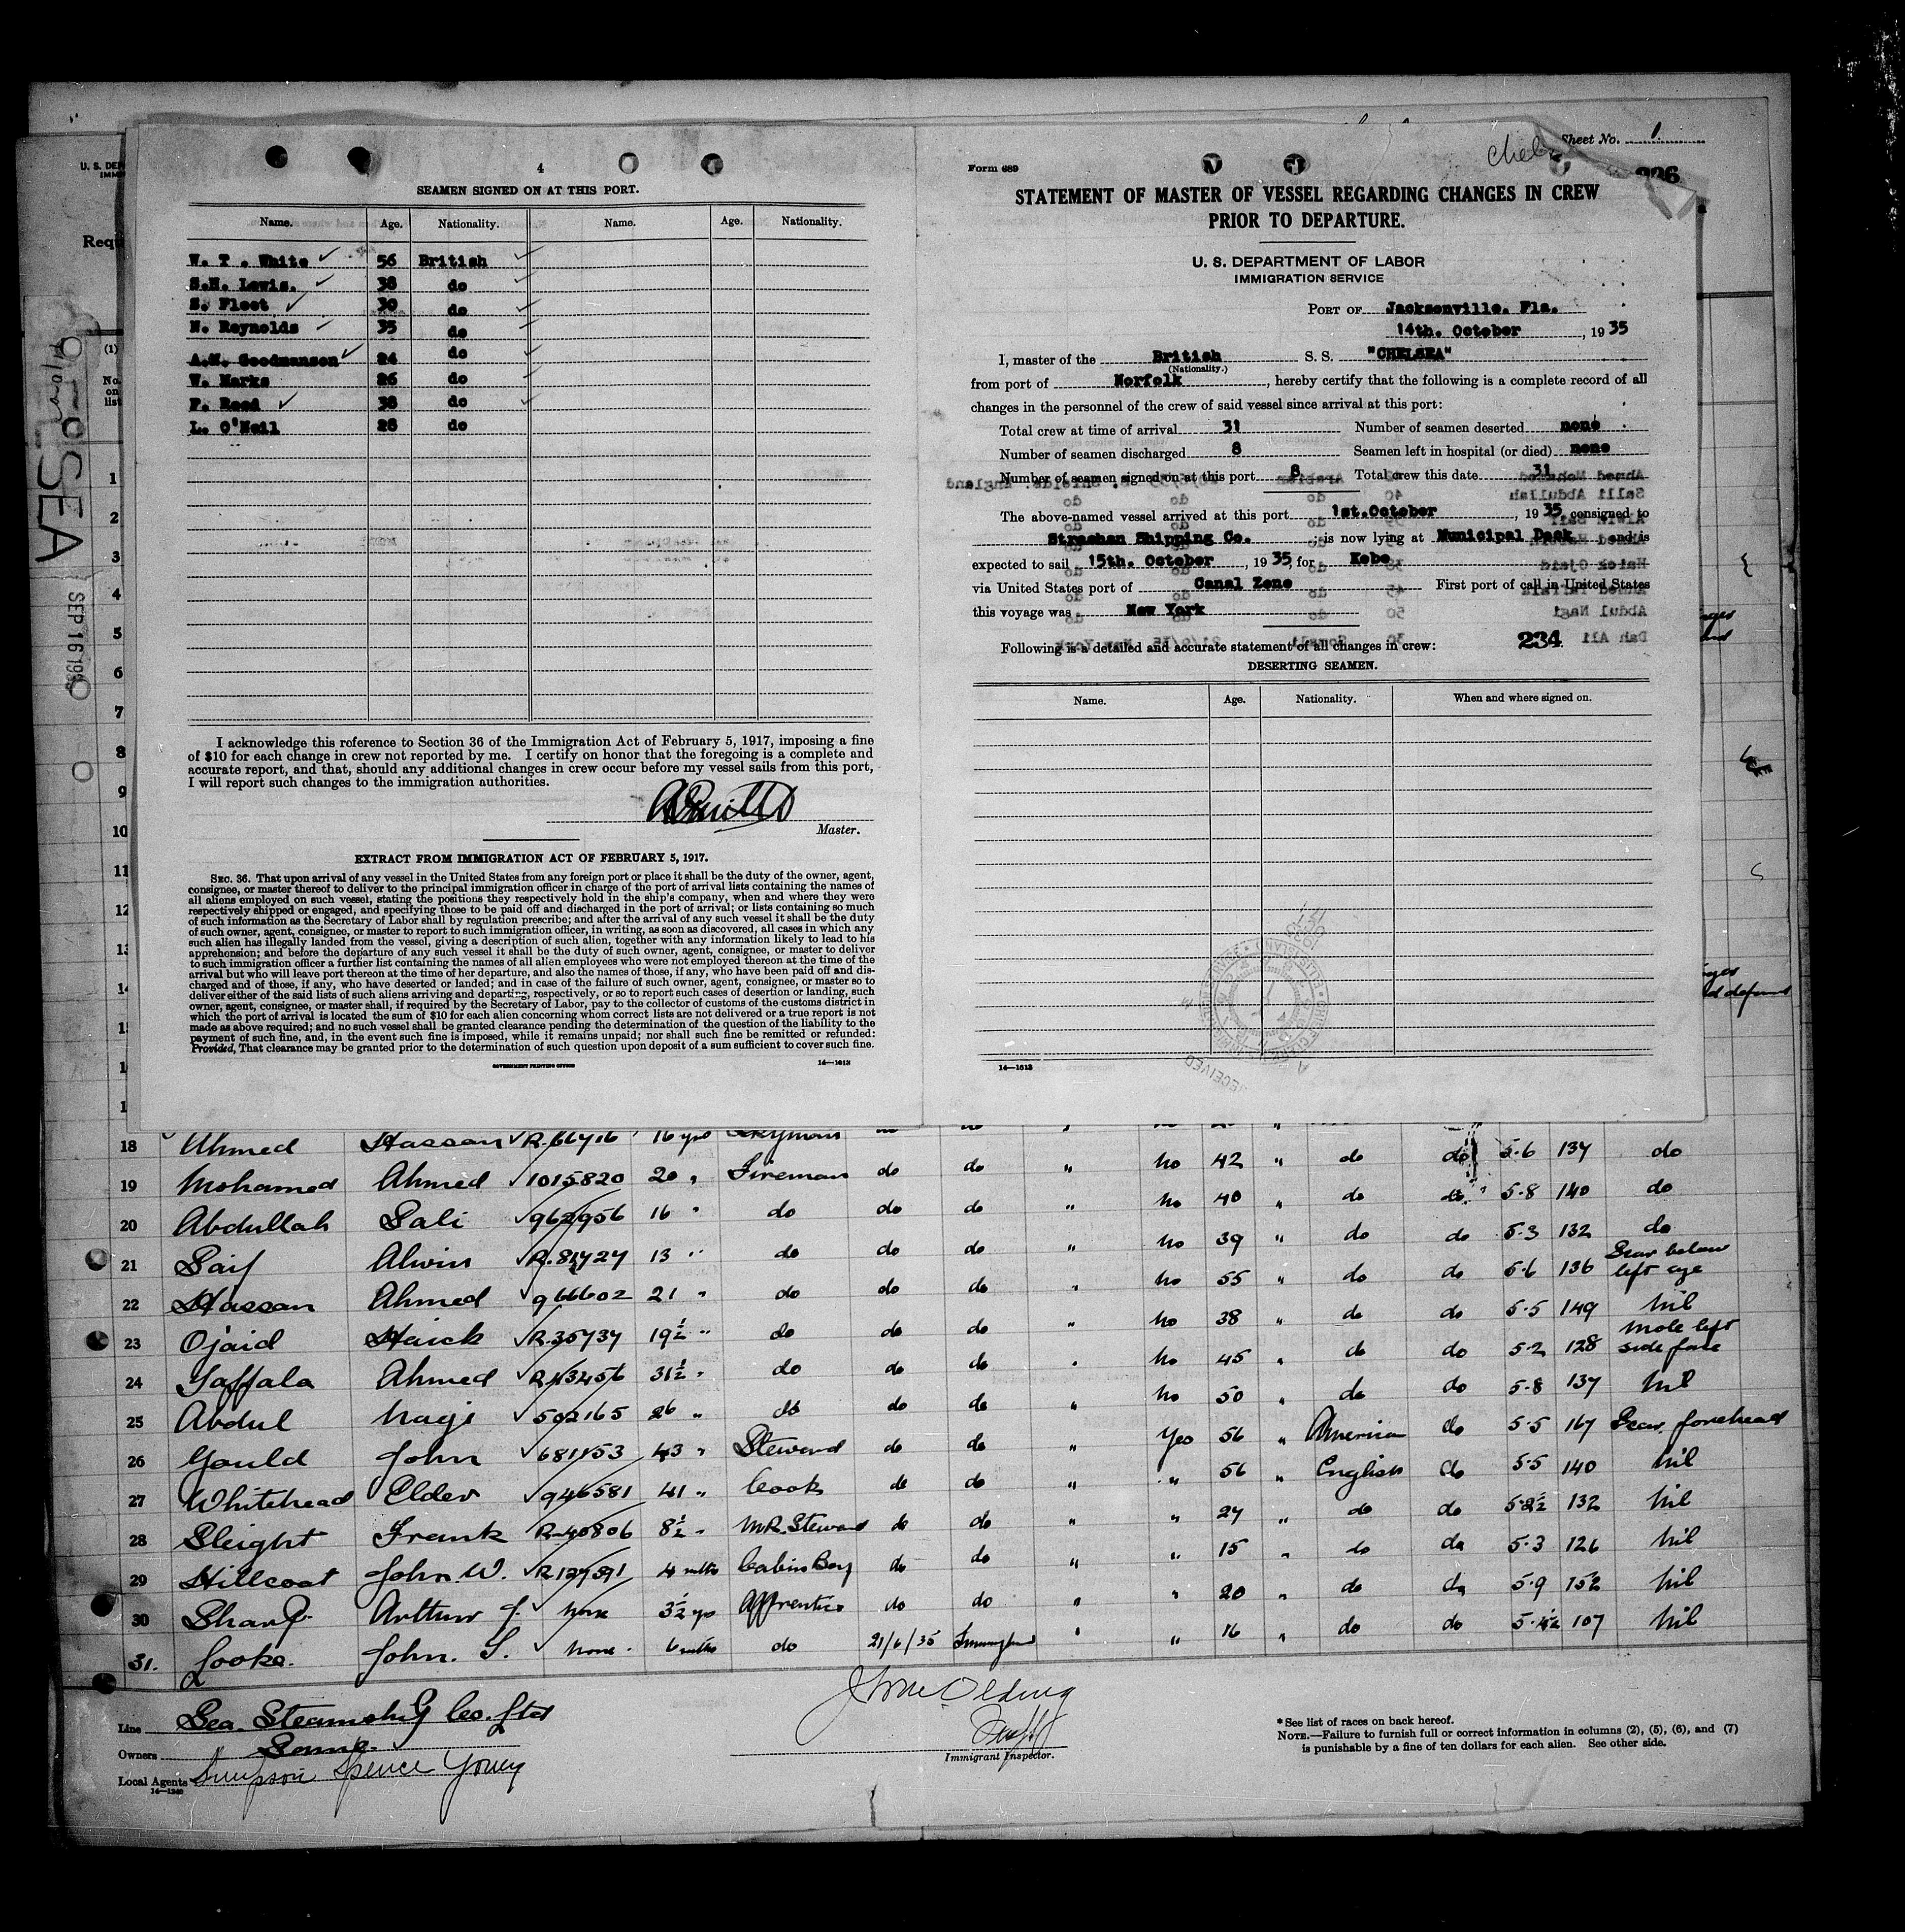 4
SEAMEN SIGNED ON AT THIS PORT.
Name. Age. Nationality. Name. Age. Nationality.
W. T. White 56 British
S.H. Lewis. 38 do
S. Fleet 30 do
N. Reynolds 35 do
A.M. Goodmanson 24 do
W. Marks 26 do
F. Reed 38 do
L. O'Neil 28 do
I acknowledge this reference to Section 36 of the Immigration Act of February 5, 1917, imposing a fine
of $10 for each change in crew not reported by me. I certify on honor that the foregoing is a complete and
accurate report, and that, should any additional changes in crew occur before my vessel sails from this port,
I will report such changes to the immigration authorities.
Master.
EXTRACT FROM IMMIGRATION ACT OF FEBRUARY 5, 1917.
SEC. 36. That upon arrival of any vessel in the United States from any foreign port or place it shall be the duty of the owner, agent,
consignee, or master thereof to deliver to the principal immigration officer in charge of the port of arrival lists containing the names of
all aliens employed on such vessel, stating the positions they respectively hold in the ship's company, when and where they were
respectively shipped or engaged, and specifying those to be paid off and discharged in the port of arrival; or lists containing so much
of such information as the Secretary of Labor shall by regulation prescribe; and after the arrival of any such vessel it shall be the duty
of such owner, agent, consignee, or master to report to such immigration officer, in writing, as soon as discovered, all cases in which any
such alien has illegally landed from the vessel, giving a description of such alien, together with any information likely to lead to his
apprehension; and before the departure of any such vessel it shall be the duty of such owner, agent, consignee, or master to deliver
to such immigration officer a further list containing the names of all alien employees who were not employed thereon at the time of the
arrival but who will leave port thereon at the time of her departure, and also the names of those, if any, who have been paid off and dis-
charged and of those, if any, who have deserted or landed; and in case of the failure of such owner, agent, consignee, or master so to
deliver either of the said lists of such aliens arriving and departing, respectively, or so to report such cases of desertion or landing, such
owner, agent, consignee, or master shall, if required by the Secretary of Labor, pay to the collector of customs of the customs district in
which the port of arrival is located the sum of $10 for each alien concerning whom correct lists are not delivered or a true report is not
made as above required; and no such vessel shall be granted clearance pending the determination of the question of the liability to the
payment of such fine, and, in the event such fine is imposed, while it remains unpaid; nor shall such fine be remitted or refunded:
Provided, That clearance may be granted prior to the determination of such question upon deposit of a sum sufficient to cover such fine.
GOVERNMENT PRINTING OFFICE 14—1613
Sheet No. 1
Form 689
STATEMENT OF MASTER OF VESSEL REGARDING CHANGES IN CREW
PRIOR TO DEPARTURE.
U. S. DEPARTMENT OF LABOR
IMMIGRATION SERVICE
PORT OF Jacksonville. Fla.
14th. October, 1935
I, master of the British S. S. "CHELSEA"
(Nationality.)
from port of Norfolk, hereby certify that the following is a complete record of all
changes in the personnel of the crew of said vessel since arrival at this port:
Total crew at time of arrival 31 Number of seamen deserted none
Number of seamen discharged 8 Seamen left in hospital (or died) none
Number of seamen signed on at this port 8 Total crew this date 31
The above-named vessel arrived at this port 1st. October, 1935, consigned to
Strachan Shipping Co.; is now lying at Municipal Dock and is
expected to sail 15th. October, 1935, for Kobe
via United States port of Canal Zone First port of call in United States
this voyage was New York
Following is a detailed and accurate statement of all changes in crew: 234
DESERTING SEAMEN.
Name. Age. Nationality. When and where signed on.
14—1613
SEP 16 1935
18 Ahmed Hassan R.66716 16 yrs
19 Mohamed Ahmed 1015820 20 " Fireman do do " no 42 " do do 5-6 137 do
20 Abdullah Sali 962956 16 " do do do " no 40 " do do 5-8 140 do
21 Saif Alwin R.81727 13 " do do do " no 39 " do do 5-3 132 do
22 Hassan Ahmed 966602 21 " do do do " no 55 " do do 5-6 136 Scar below left eye
23 Ojaid Haick R.35737 19½ " do do do " no 38 " do do 5-5 149 nil
24 Taffala Ahmed R.43456 31½ " do do do " no 45 " do do 5-2 128 mole left side face
25 Abdul Nagi 502165 26 " do do do " no 50 " do do 5-8 137 nil
26 Gould John 681153 43 " Steward do do " Yes 56 " American do 5-5 167 Scar forehead
27 Whitehead Elder 946581 41 " Cook do do " " 56 " English do 5-5 140 nil
28 Sleight Frank R.40806 8½ " M.R. Steward do do " " 27 " do do 5-2½ 132 nil
29 Hillcoat John. W. R127591 4 mths Cabin Boy do do " " 15 " do do 5-3 126 nil
30 Sharp Arthur J. none 3½ yrs Apprentice do do " " 20 " do do 5-9 152 nil
31. Cooke. John. S. none 6 mths do 21/6/35 Immingham " " 16 " do do 5-4½ 107 nil
Line Sea Steamship Co. Ltd
Owners Same.
Local Agents Simpson Spence Young
14—1240
Immigrant Inspector.
*See list of races on back hereof.
NOTE.—Failure to furnish full or correct information in columns (2), (5), (6), and (7)
is punishable by a fine of ten dollars for each alien. See other side.